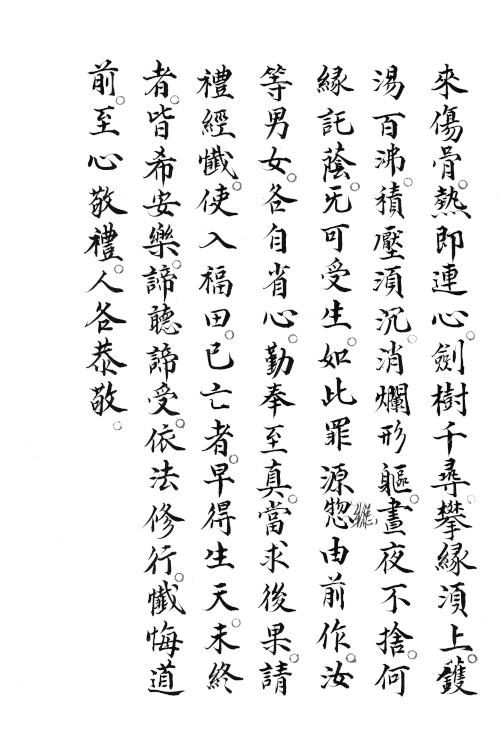 來傷骨。熱即連心。劍樹千尋。攀緣湏上。鑊
湯百沸。積壓湏沉。消爛形軀。晝夜不捨。何
緣託蔭。无可受生。如此罪源惣由前作。汝
等男女。各自省心。勤奉至真。當求後果。請
禮經懺。使入福田。已亡者。早得生天。未終
者。皆希安樂。諦聽諦受。依法修行。懺悔道
前。至心敬禮。人各恭敬。